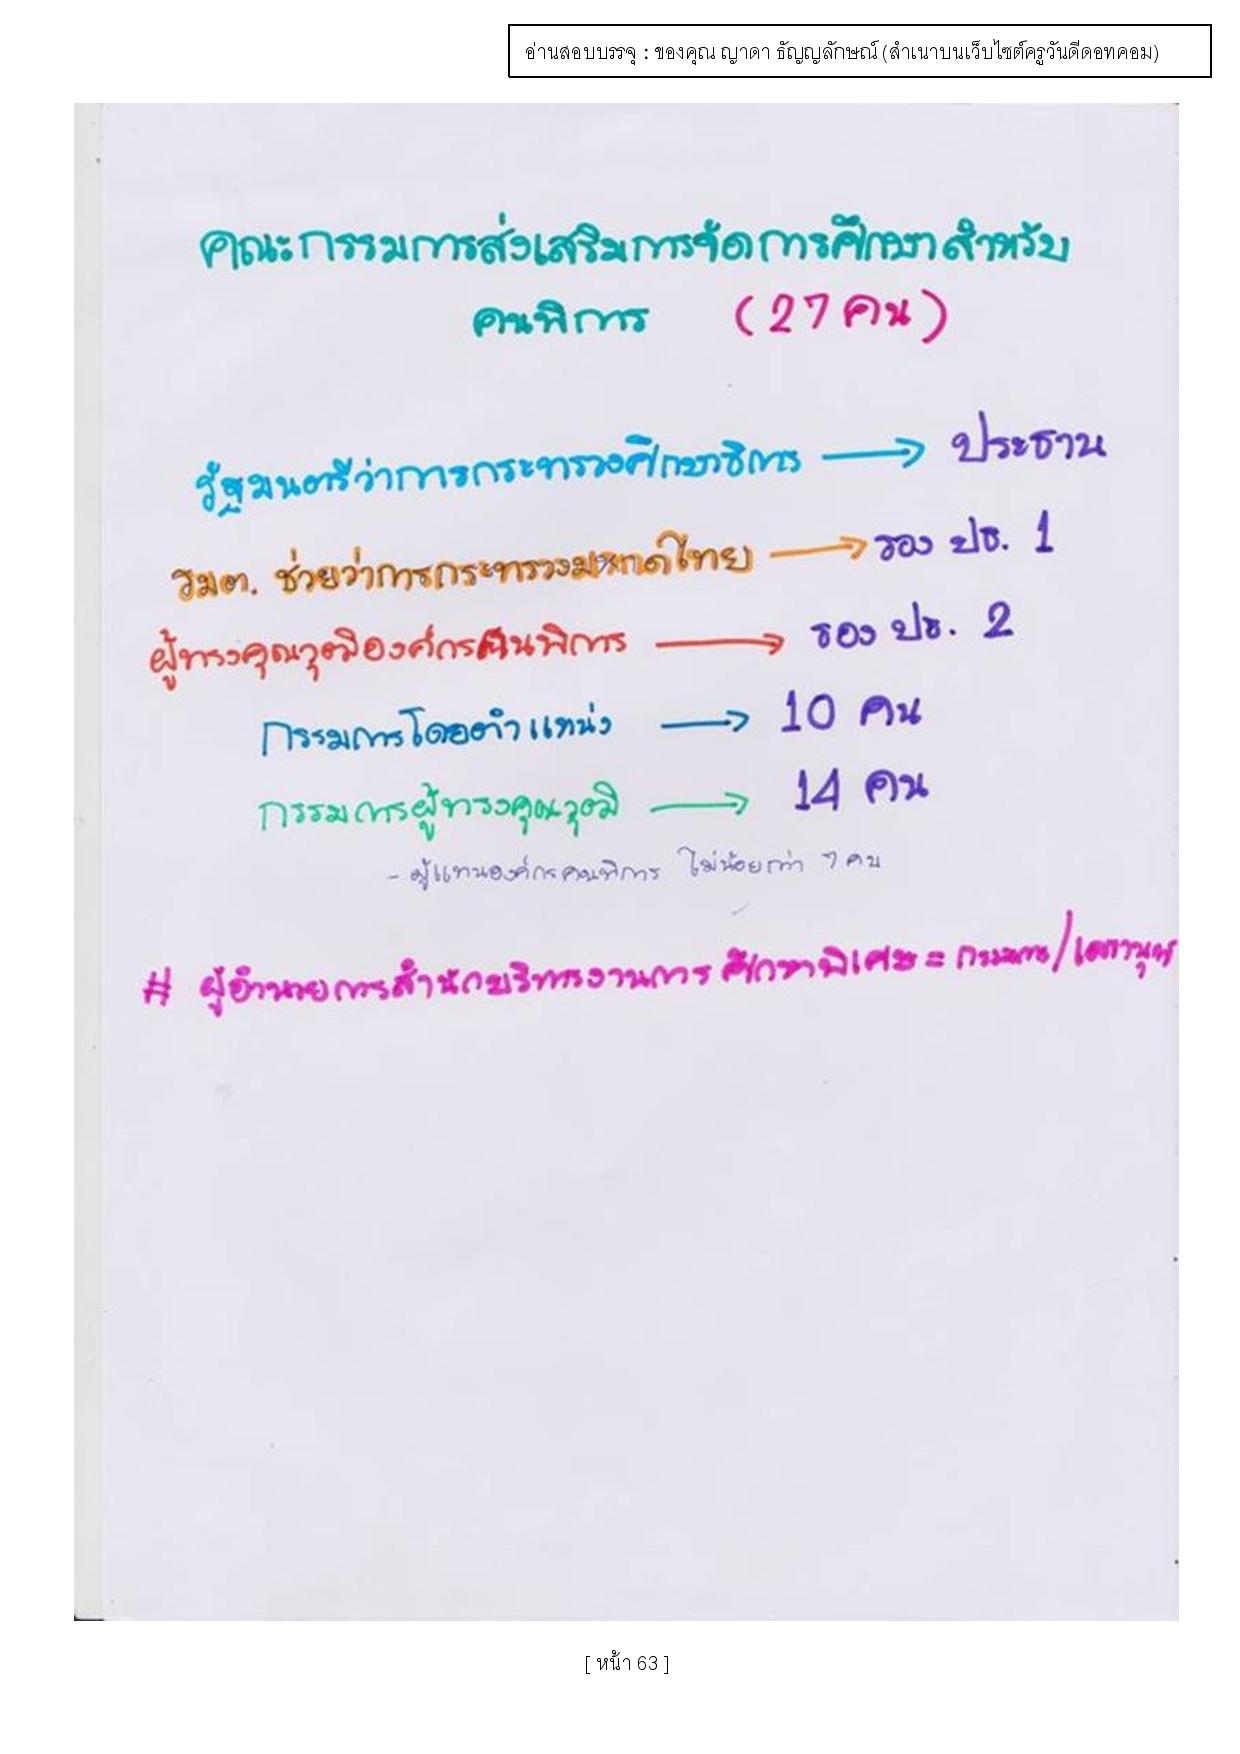 อ่านสอบบรรจุ : ของคุณ ญาดา ธัญญลักษณ์ (สำเนาบนเว็บไซต์ครูวันดีดอทคอม)
คณะกรรมการส่งเสริมการจัดการศึกษาสำหรับ
คนพิการ (27 คน)
รัฐมนตรีว่าการกระทรวงศึกษาธิการ → ประธาน
รมต. ช่วยว่าการกระทรวง → รอง ปธ. 1
ผู้ทรงคุณวุฒิองค์กรคนพิการ → รอง ปธ. 2
กรรมการโดยตำแหน่ง → 10 คน
กรรมการผู้ทรงคุณวุฒิ → 14 คน
- ผู้แทนองค์กรคนพิการ ไม่น้อยกว่า 7 คน
# ผู้อำนวยการสำนักบริหารงานการศึกษาพิเศษ = กรรมการ/เลขานุการ
[ หน้า 63 ]